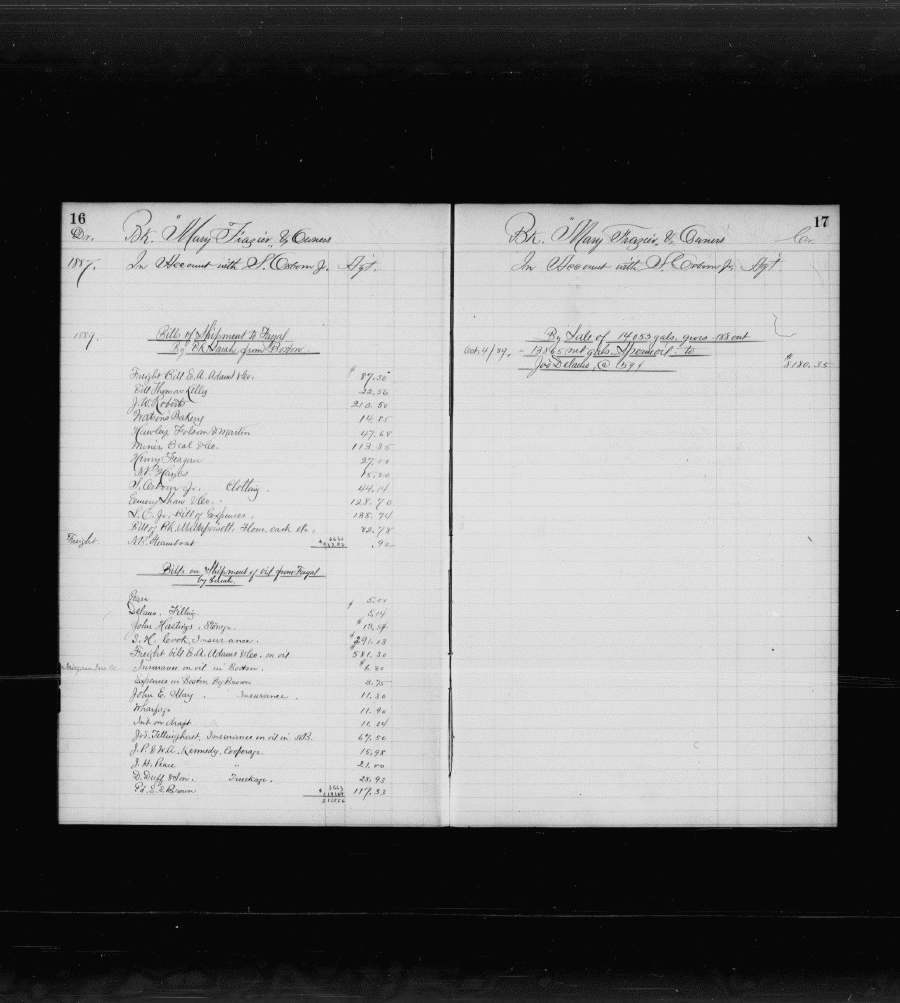 16
Dr. Bk. "Mary Frazier" & Owners
1887. In Account with S. Osborn Jr. Agt.
1889. Bills of Shipment to Fayal
By Bk Sarah, from Boston
Freight Bill E. A. Adams & Co. $ 87.50
Bill Thomas Kelley 22.56
J. W. Roberts 210.50
Watson's Bakery 14.85
Hawley Folsom & Martin 47.68
Miner Beal & Co. 113.35
Henry Feagan 27.00
Hayes 15.20
S. Osborn Jr. Clothing 44.14
Emery Shaw & Co. 128.70
S. O. Jr. Bill of Expenses. 188.74
Bill of Ch. Flour, cash etc. 82.78
Freight Steamboat .92
Bills on Shipment of oil from Fayal
by Sarah.
5.00
Delano. Filling 5.04
John Hastings. Storage
S. H. Cook, Insurance. $291.03
Freight bill E. A. Adams & Co. on oil $581.30
Insurance on oil in Boston. $6.80
Expenses in Boston By Brown 3.75
John E. May. Insurance. 11.30
Wharfage 11.90
Int on draft 11.24
Jos. Tillinghast, Insurance on oil in N.B. 67.50
J. P. & W. A. Kennedy, Cooperage. 15.98
J. H. Pease " 21.00
D. Duff & Son. Truckage. 23.92
Pd. S. E. Brown 117.53
17
Bk. "Mary Frazier" & Owners Cr.
In Account with S. Osborn Jr. Agt
By Sale of 14053 gals. gross 188 out
Oct. 4/89. = 13865 net gals. Sperm oil. to
Jos Delano, @ .59 $8180.35